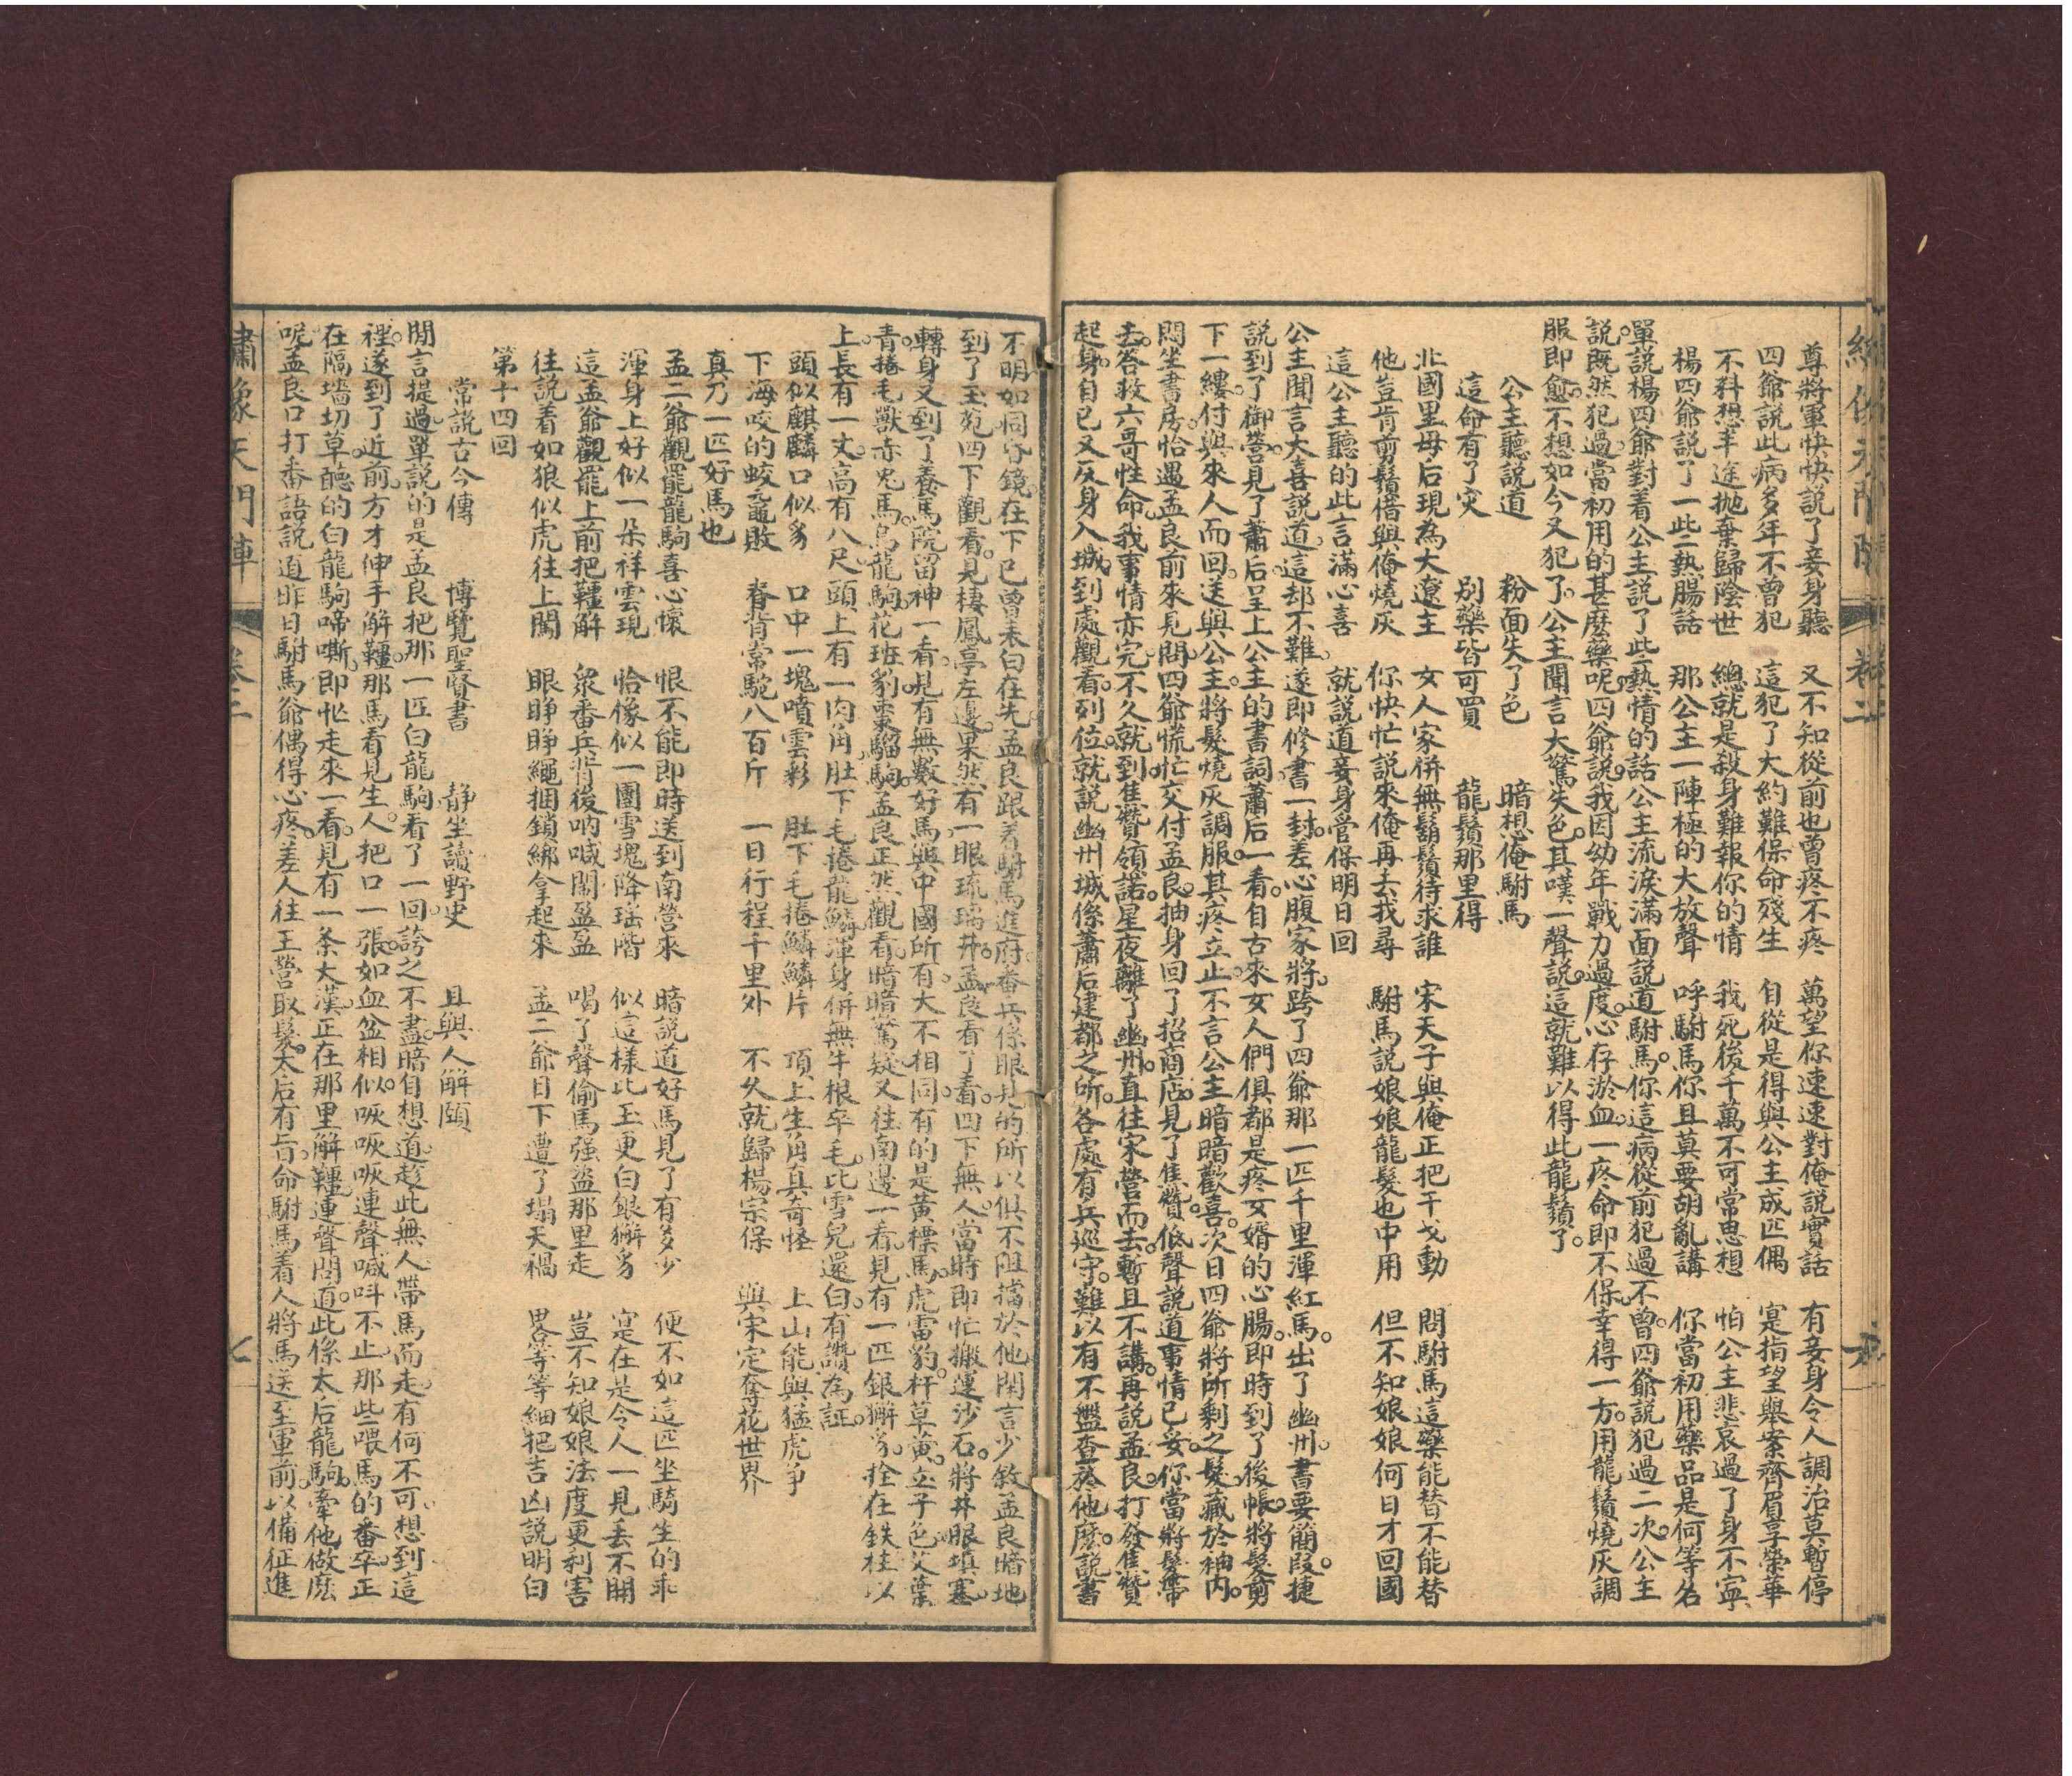 尊將軍快快説了妾身聽　又不知從前也曾疼不疼　萬望你速速對俺説實話　有妾身令人調治莫暫停
四爺説此病多年不曾犯　這犯了大約難保命殘生　自從是得與公主成匹偶　寔指望舉案齊眉享榮華
不料想半途拋棄歸陰世　總就是殺身難報你的情　我死後千萬不可常思想　怕公主悲哀過了身不寧
楊四爺説了一些熱腸話　那公主一陣極的大放聲　呼駙馬你且莫要胡亂講　你當初用藥品是何等名
單説楊四爺對着公主説了此熱情的話公主流淚滿面説道駙馬。你這病從前犯過不曾。四爺説犯過二次。公主
説。既然犯過。當初用的甚麽藥呢。四爺説。我因幼年戰力過度。心存淤血。一疼命即不保。幸得一方。用龍鬚燒灰調
服即愈。不想如今又犯了。公主聞言大驚失色。其嘆一聲説。這就難以得此龍鬚了。
公主聽説道　粉面失了色　暗想俺駙馬
這命有了灾　別藥皆可買　龍鬚那里得
北國里母后現為大遼主　女人家併無鬍鬚待求誰　宋天子與俺正把干戈動　問駙馬這藥能替不能替
他豈肯剪鬚借與俺燒灰　你快忙説來俺再去我尋　駙馬説娘娘龍髮也中用　但不知娘娘何日才回國
這公主聽的此言滿心喜　就説道妾身管保明日回
公主聞言大喜説道。這却不難。遂即修書一封。差心腹家將。跨了四爺那一匹千里渾紅馬。出了幽州。書要簡段捷
説到了御營。見了蕭后。呈上公主的書詞。蕭后一看。自古來女人們俱都是疼女婿的心腸。即時到了後帳。將髮剪
下一縷。付與來人而回。送與公主。將髮燒灰調服。其疼立止。不言公主暗暗歡喜。次日四爺將所剩之髮藏於袖内。
悶坐書房。恰遇孟良前來見。問四爺慌忙交付孟良。抽身回了招商店。見了焦贊。低聲説道事情已妥。你當將髮帶
去。答救六哥性命。我事情亦完。不久就到。焦贊領諾。星夜離了幽州。直往宋營而去。暫且不講。再説孟良打發焦贊
起身。自已又反身入城。到處觀看。列位就説幽州城係蕭后建都之所。各處有兵巡守。難以有不盤查於他麽。説書
不明如同昏鏡在下已曾表白在先。孟良跟着駙馬進府。番兵係眼見的所以俱不阻擋於他閑言少敘孟良暗地
到了玉苑四下觀看。見棲鳳亭左邊。果然有一眼琉璃井。孟良看了看。四下無人。當時即忙搬運沙石。將井眼填塞。
轉身又到了養馬院留神一看。見有無數好馬。與中國所有。大不相同。有的是黄標馬。虎雷豹。杆草黄。立子色。艾葉
青。捲毛獸。赤兔馬。烏龍駒。花班豹。棗騮駒。孟良正然觀看。暗暗驚疑。又往南邊一看。見有一匹銀獬豸。拴在鉄柱以
上。長有一丈。高有八尺。頭上有一肉角。肚下毛捲龍鱗。渾身併無半根卒毛。比雪兒還白。有讚為証。
頭似麒麟口似豸　口中一塊噴雲彩　肚下毛捲鱗鱗片　頂上生角真奇怪　上山能與猛虎争
下海咬的蛟鼋敗　脊背常駝八百斤　一日行程千里外　不久就歸楊宗保　與宋定奪花世界
真乃一匹好馬也
孟二爺觀罷龍駒喜心懷　恨不能即時送到南營來　暗説道好馬見了有多少　便不如這匹坐騎生的乖
渾身上好似一朵祥雲現　恰像似一團雪塊降瑶階　似這樣比玉更白銀獬豸　寔在是令人一見丢不開
這孟爺觀罷上前把韁解　衆番兵背後吶喊鬧盈盈　喝了聲偷馬强盗那里走　豈不知娘娘法度更利害
往説着如狼似虎往上闖　眼睁睁繩捆鎖綁拿起來　孟二爺目下遭了塌天禍　畧等等細把吉凶説明白
第十四回
常説古今傳　博覽聖賢書　静坐讀野史　且與人解頤
閒言提過。單説的是孟良把那一匹白龍駒看了一回。誇之不盡。暗自想道。趂此無人。帶馬而走。有何不可。想到這
裡。遂到了近前。方才伸手解韁。那馬看見生人。把口一張。如血盆相似。咴咴咴連聲喊呌不止。那些喂馬的番卒。正
在隔墻切草。聽的白龍駒啼嘶。即忙走來一看。見有一条大漢。正在那里解韁。連聲問道。此係太后龍駒。牽他做麽
呢。孟良口打番語説道。昨日駙馬爺偶得心疼。差人往王營取髮。太后有旨。命駙馬着人將馬送至軍前。以備征進
繡像天門陣　卷二　七